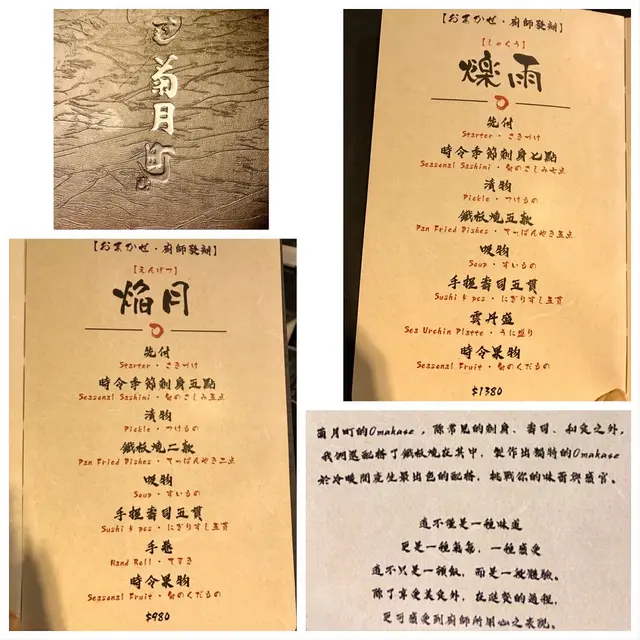 菊月町
【おまかせ・廚師發辦】
【しゃくう】
爍雨
先付
Starter・さきづけ
時令季節刺身七點
Seasonal Sashimi・旬のさしみ七点
漬物
Pickle・つけもの
鐵板燒五款
Pan Fried Dishes・てっぱんやき五点
吸物
Soup・すいもの
手握壽司五貫
Sushi 5 pcs・にぎりずし五貫
雲丹盛
Sea Urchin Platte・うに盛り
時令果物
Seasonal Fruit・旬のくだもの
$1380
【おまかせ・廚師發辦】
【えんげつ】
焔月
先付
Starter・さきづけ
時令季節刺身五點
Seasonal Sashimi・旬のさしみ五点
漬物
Pickle・つけもの
鐵板燒二款
Pan Fried Dishes・てっぱんやき二点
吸物
Soup・すいもの
手握壽司五貫
Sushi 5 pcs・にぎりずし五貫
手卷
Hand Roll・てまき
時令果物
Seasonal Fruit・旬のくだもの
$980
菊月町的Omakase，除常見的刺身、壽司、和食之外，
我們還配搭了鐵板燒在其中，製作出獨特的Omakase
於冷暖間產生最出色的配搭，挑戰你的味蕾與感官。
這不僅是一種味道
更是一種氣氛，一種感受
這不只是一頓飯，而是一種體驗。
除了享受美食外，在送餐的過程，
更可感受到廚師所用心之表現。